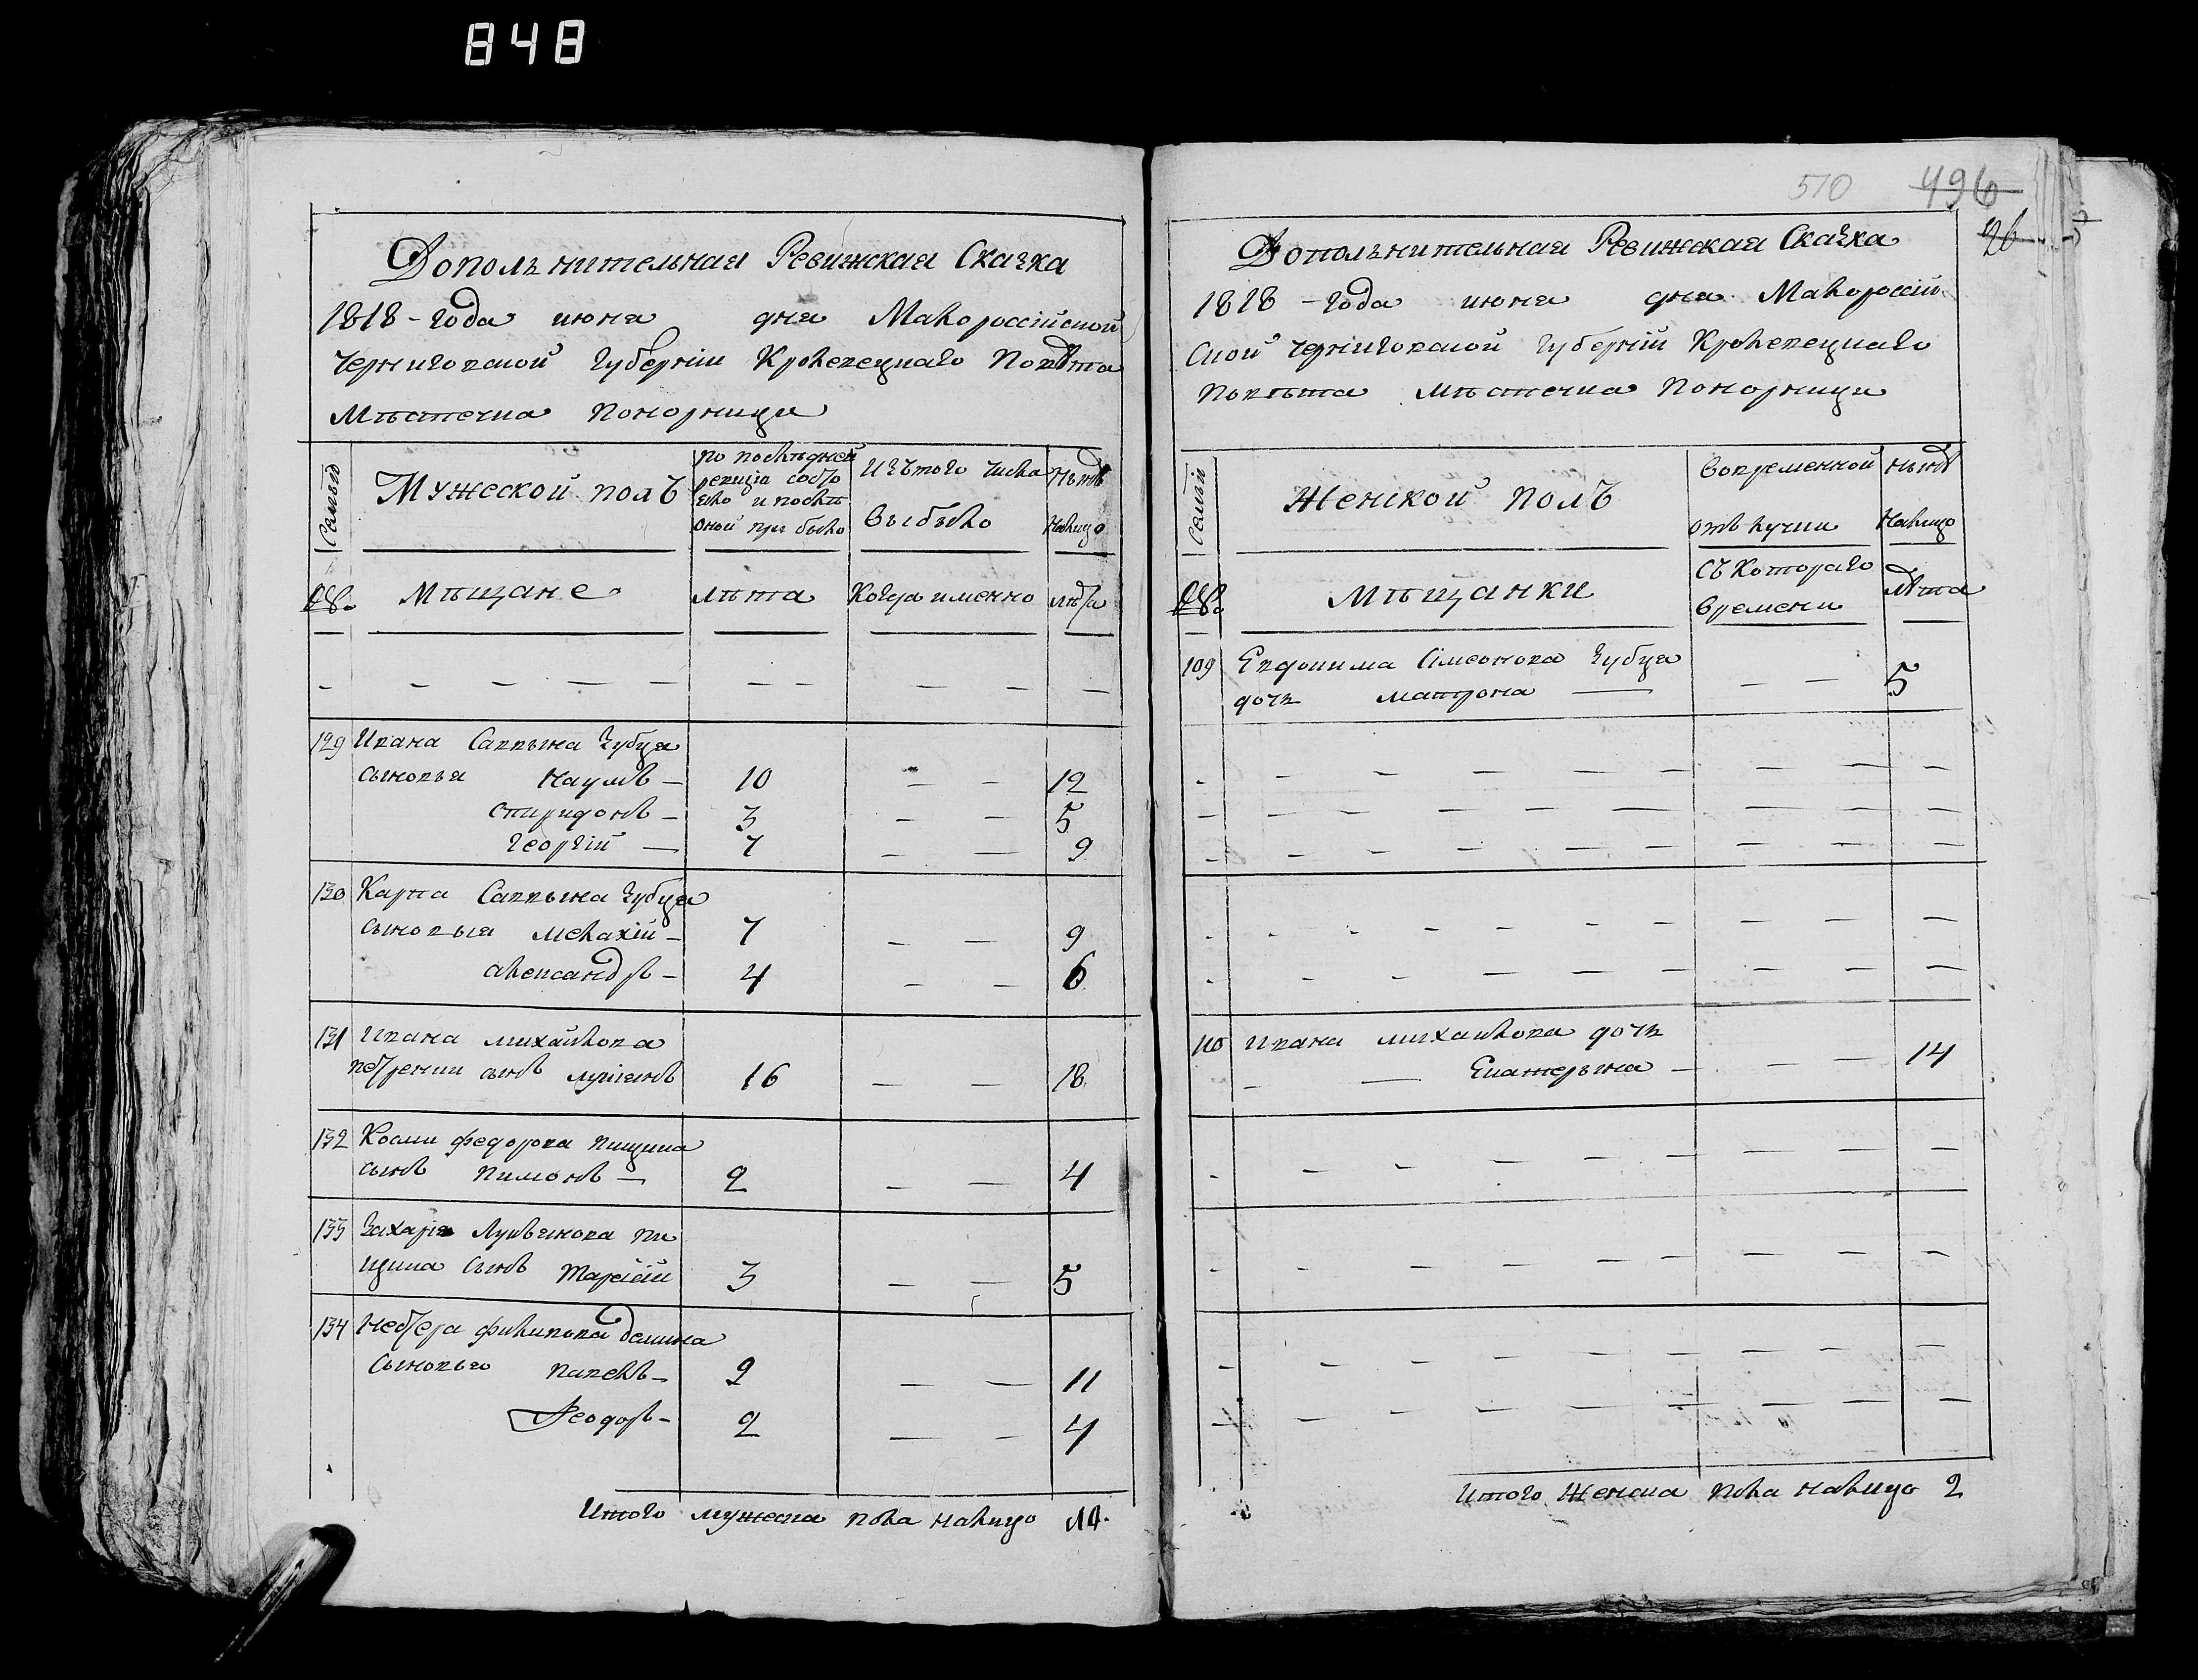 848
Дополънительная Ревижская Сказка
1818-года июня дня Малороссійской
Черниговской Губерніи Кролевецкаго Повѣта
Мѣстечка Понорници
Семьи
Мужеской полъ
по послѣдней
ревизіи состо
яло и послѣ
оной прибыло
Изътого числа
выбыло
Нынѣ
налицо
№
Мѣщане
лѣта
Когда именно
лѣта
129 Ивана Саввына Зубця
сыновья Наумъ — 10 — — 12
Спиридонъ — 3 — — 5
Георгій — 7 — — 9
130 Карпа Саввына Зубця
сыновья Мелахій — 7 — — 9
Александръ — 4 — — 6
131 Ивана Михайлова
сынъ 16 — — 18
132 Косми Федорова Пищика
сынъ Пимонъ — 2 — — 4
133 Захарія Лукьянова Пи
щика сынъ Тарасій 3 — — 5
134 Нестера Филипова
сыновья Павелъ — 9 — — 11
Феодоръ — 2 — — 4
Итого мужеска пола налицо 14.
510 496
26
Дополънительная Ревижская Сказка
1818 -года июня дня Малороссій
ской Черниговской Губерніи Кролевецкаго
Повѣта Мѣстечка Понорници
Семьи
Женской полъ
Вовременной
отлучки
Нынѣ
налицо
№
Мѣщанки
Съ Котораго
времени
лѣта
109 Евдокима Сімеонова Зубця
дочь Матрона — — — 5
110 Ивана Михайлова дочь
— — Екатерына — — — 14
Итого Женска пола налицо 2